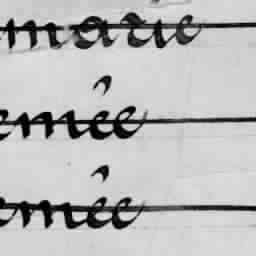 marie
emée
emée